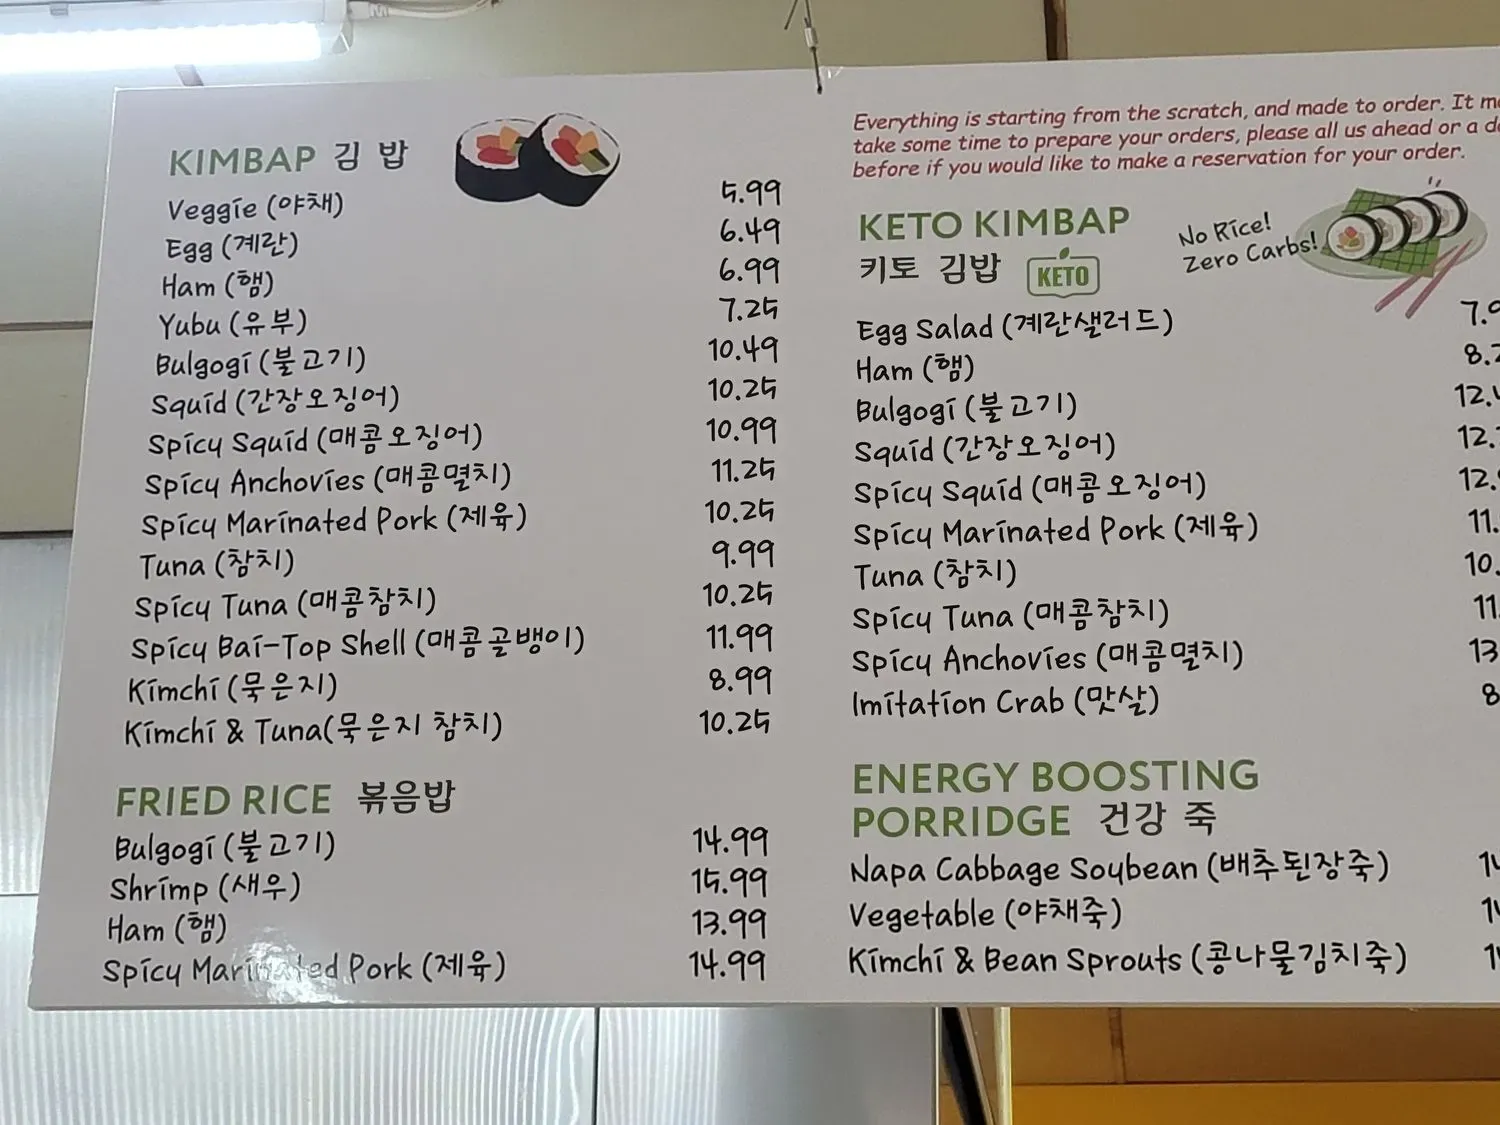 KIMBAP 김 밥
Veggie (야채) 5.99
Egg (계란) 6.49
Ham (햄) 6.99
Yubu (유부) 7.25
Bulgogi (불고기) 10.49
Squid (간장오징어) 10.25
Spicy Squid (매콤오징어) 10.99
Spicy Anchovies (매콤멸치) 11.25
Spicy Marinated Pork (제육) 10.25
Tuna (참치) 9.99
Spicy Tuna (매콤참치) 10.25
Spicy Bai-Top Shell (매콤골뱅이) 11.99
Kimchi (묵은지) 8.99
Kimchi & Tuna(묵은지 참치) 10.25
FRIED RICE 볶음밥
Bulgogi (불고기) 14.99
Shrimp (새우) 15.99
Ham (햄) 13.99
Spicy Marinated Pork (제육) 14.99
Everything is starting from the scratch, and made to order. It
take some time to prepare your orders, please all us ahead or a
before if you would like to make a reservation for your order.
KETO KIMBAP
키토 김밥 KETO
No Rice!
Zero Carbs!
Egg Salad (계란샐러드)
Ham (햄)
Bulgogi (불고기)
Squid (간장오징어)
Spicy Squid (매콤오징어)
Spicy Marinated Pork (제육)
Tuna (참치)
Spicy Tuna (매콤참치)
Spicy Anchovies (매콤멸치)
Imitation Crab (맛살)
ENERGY BOOSTING
PORRIDGE 건강 죽
Napa Cabbage Soybean (배추된장죽)
Vegetable (야채죽)
Kimchi & Bean Sprouts (콩나물김치죽)